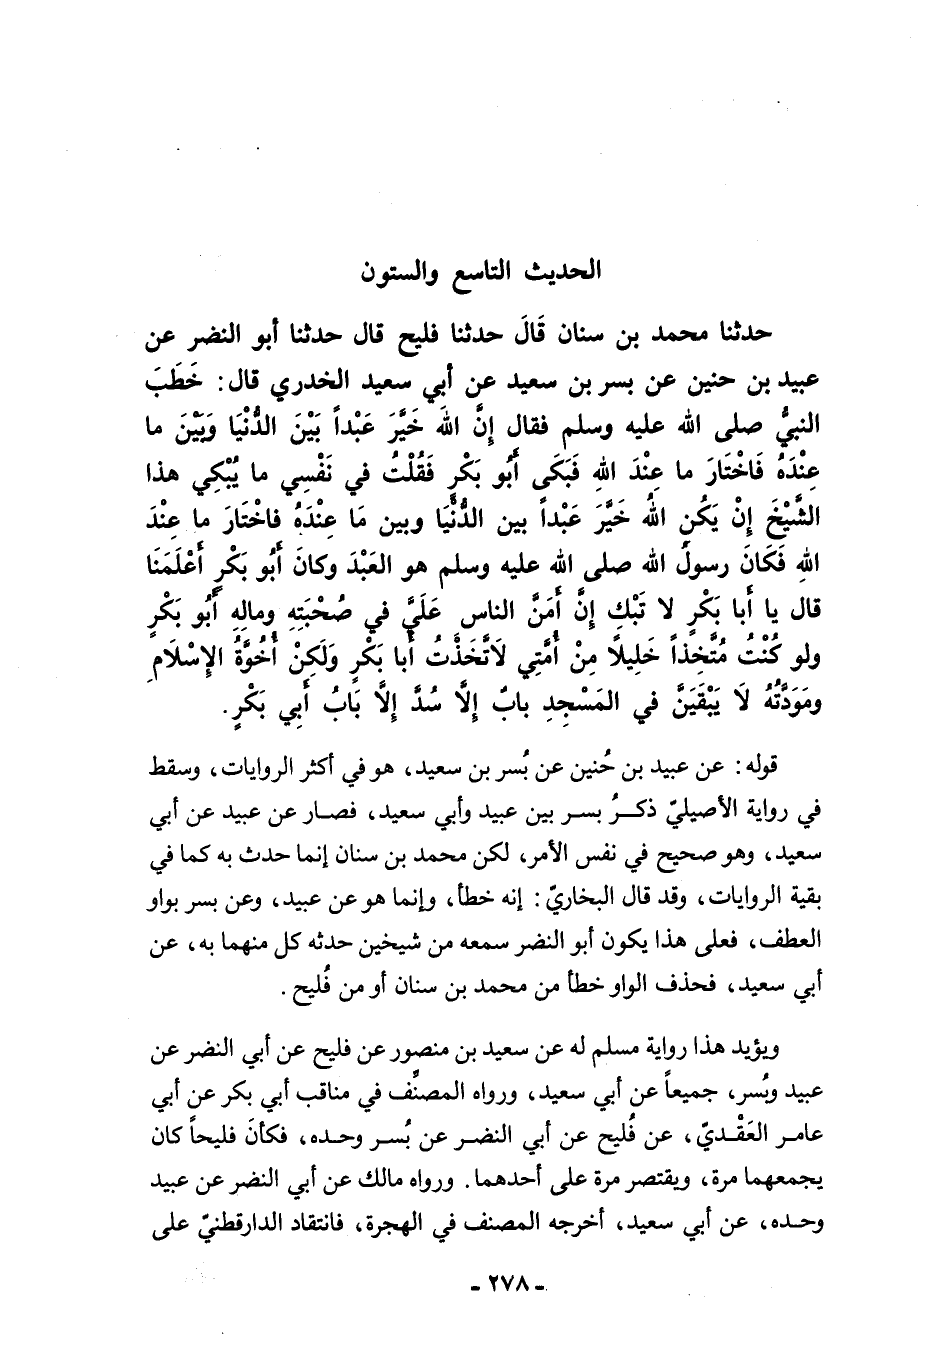 الحديث التاسع والستون
حدثنا محمد بن سنان قَالَ حدثنا فليح قال حدثنا أبو النضر عن
عبيد بن حنين عن بسر بن سعيد عن أبي سعيد الخدري قال: خَطَبَ
النبيُّ صلى الله عليه وسلم فقال إِنَّ اللهَ خَيَّرَ عَبْداً بَيْنَ الدُّنْيَا وَبَيْنَ ما
عِنْدَهُ فَاخْتَارَ ما عِنْدَ اللهِ فَبَكَى أَبُو بَكْرٍ فَقُلْتُ في نَفْسِي ما يُبْكِي هذا
الشَّيْخَ إِنْ يَكُنِ اللهُ خَيَّرَ عَبْداً بين الدُّنْيَا وبين مَا عِنْدَهُ فاخْتَارَ ما عِنْدَ
اللهِ فَكَانَ رسولُ الله صلى الله عليه وسلم هو العَبْدَ وكانَ أَبُو بَكْرٍ أَعْلَمَنَا
قال يا أَبا بَكْرٍ لا تَبْكِ إِنَّ أَمَنَّ الناس عَلَيَّ في صُحْبَتِهِ ومالِهِ أَبُو بَكْرٍ
ولو كُنْتُ مُتَّخِذاً خَلِيلًا مِنْ أُمَّتِي لَاتَّخَذْتُ أَبا بَكْرٍ وَلَكِنْ أُخُوَّةُ الإِسْلَامِ
ومَوَدَّتُهُ لَا يَبْقَيَنَّ في المَسْجِدِ بابٌ إِلَّا سُدَّ إِلَّا بَابُ أَبِي بَكْرٍ.
قوله: عن عبيد بن حُنين عن بُسر بن سعيد، هو في أكثر الروايات، وسقط
في رواية الأصيليّ ذكرُ بسر بين عبيد وأبي سعيد، فصار عن عبيد عن أبي
سعيد، وهو صحيح في نفس الأمر، لكن محمد بن سنان إنما حدث به كما في
بقية الروايات، وقد قال البخاريّ: إنه خطأ، وإنما هو عن عبيد، وعن بسر بواو
العطف، فعلى هذا يكون أبو النضر سمعه من شيخين حدثه كل منهما به، عن
أبي سعيد، فحذف الواو خطأ من محمد بن سنان أو من فُليح.
ويؤيد هذا رواية مسلم له عن سعيد بن منصور عن فليح عن أبي النضر عن
عبيد وبُسر، جميعاً عن أبي سعيد، ورواه المصنِّف في مناقب أبي بكر عن أبي
عامر العَقْديّ، عن فُليح عن أبي النضر عن بُسر وحده، فكأنَ فليحاً كان
يجمعهما مرة، ويقتصر مرة على أحدهما. ورواه مالك عن أبي النضر عن عبيد
وحده، عن أبي سعيد، أخرجه المصنف في الهجرة، فانتقاد الدارقطنيّ على
- ٢٧٨ -